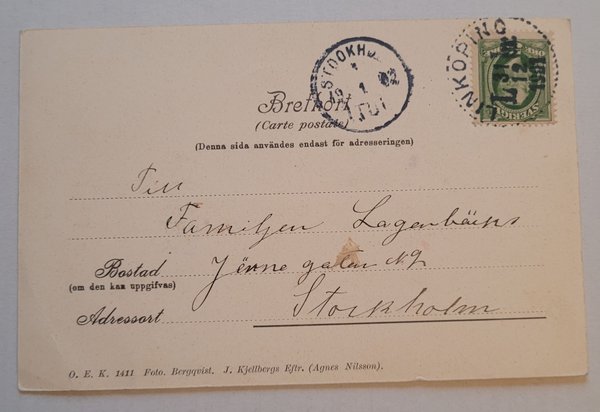 LINKÖPING
12
1901
STOCKH
1
02
Brefkort
(Carte postale)
(Denna sida användes endast för adresseringen)
Till
Familjen Lagerbäcks
Bostad
(om den kan uppgifvas)
gatan
Adressort
Stockholm
O. E. K. 1411 Foto. Bergqvist. J. Kjellbergs Eftr. (Agnes Nilsson).